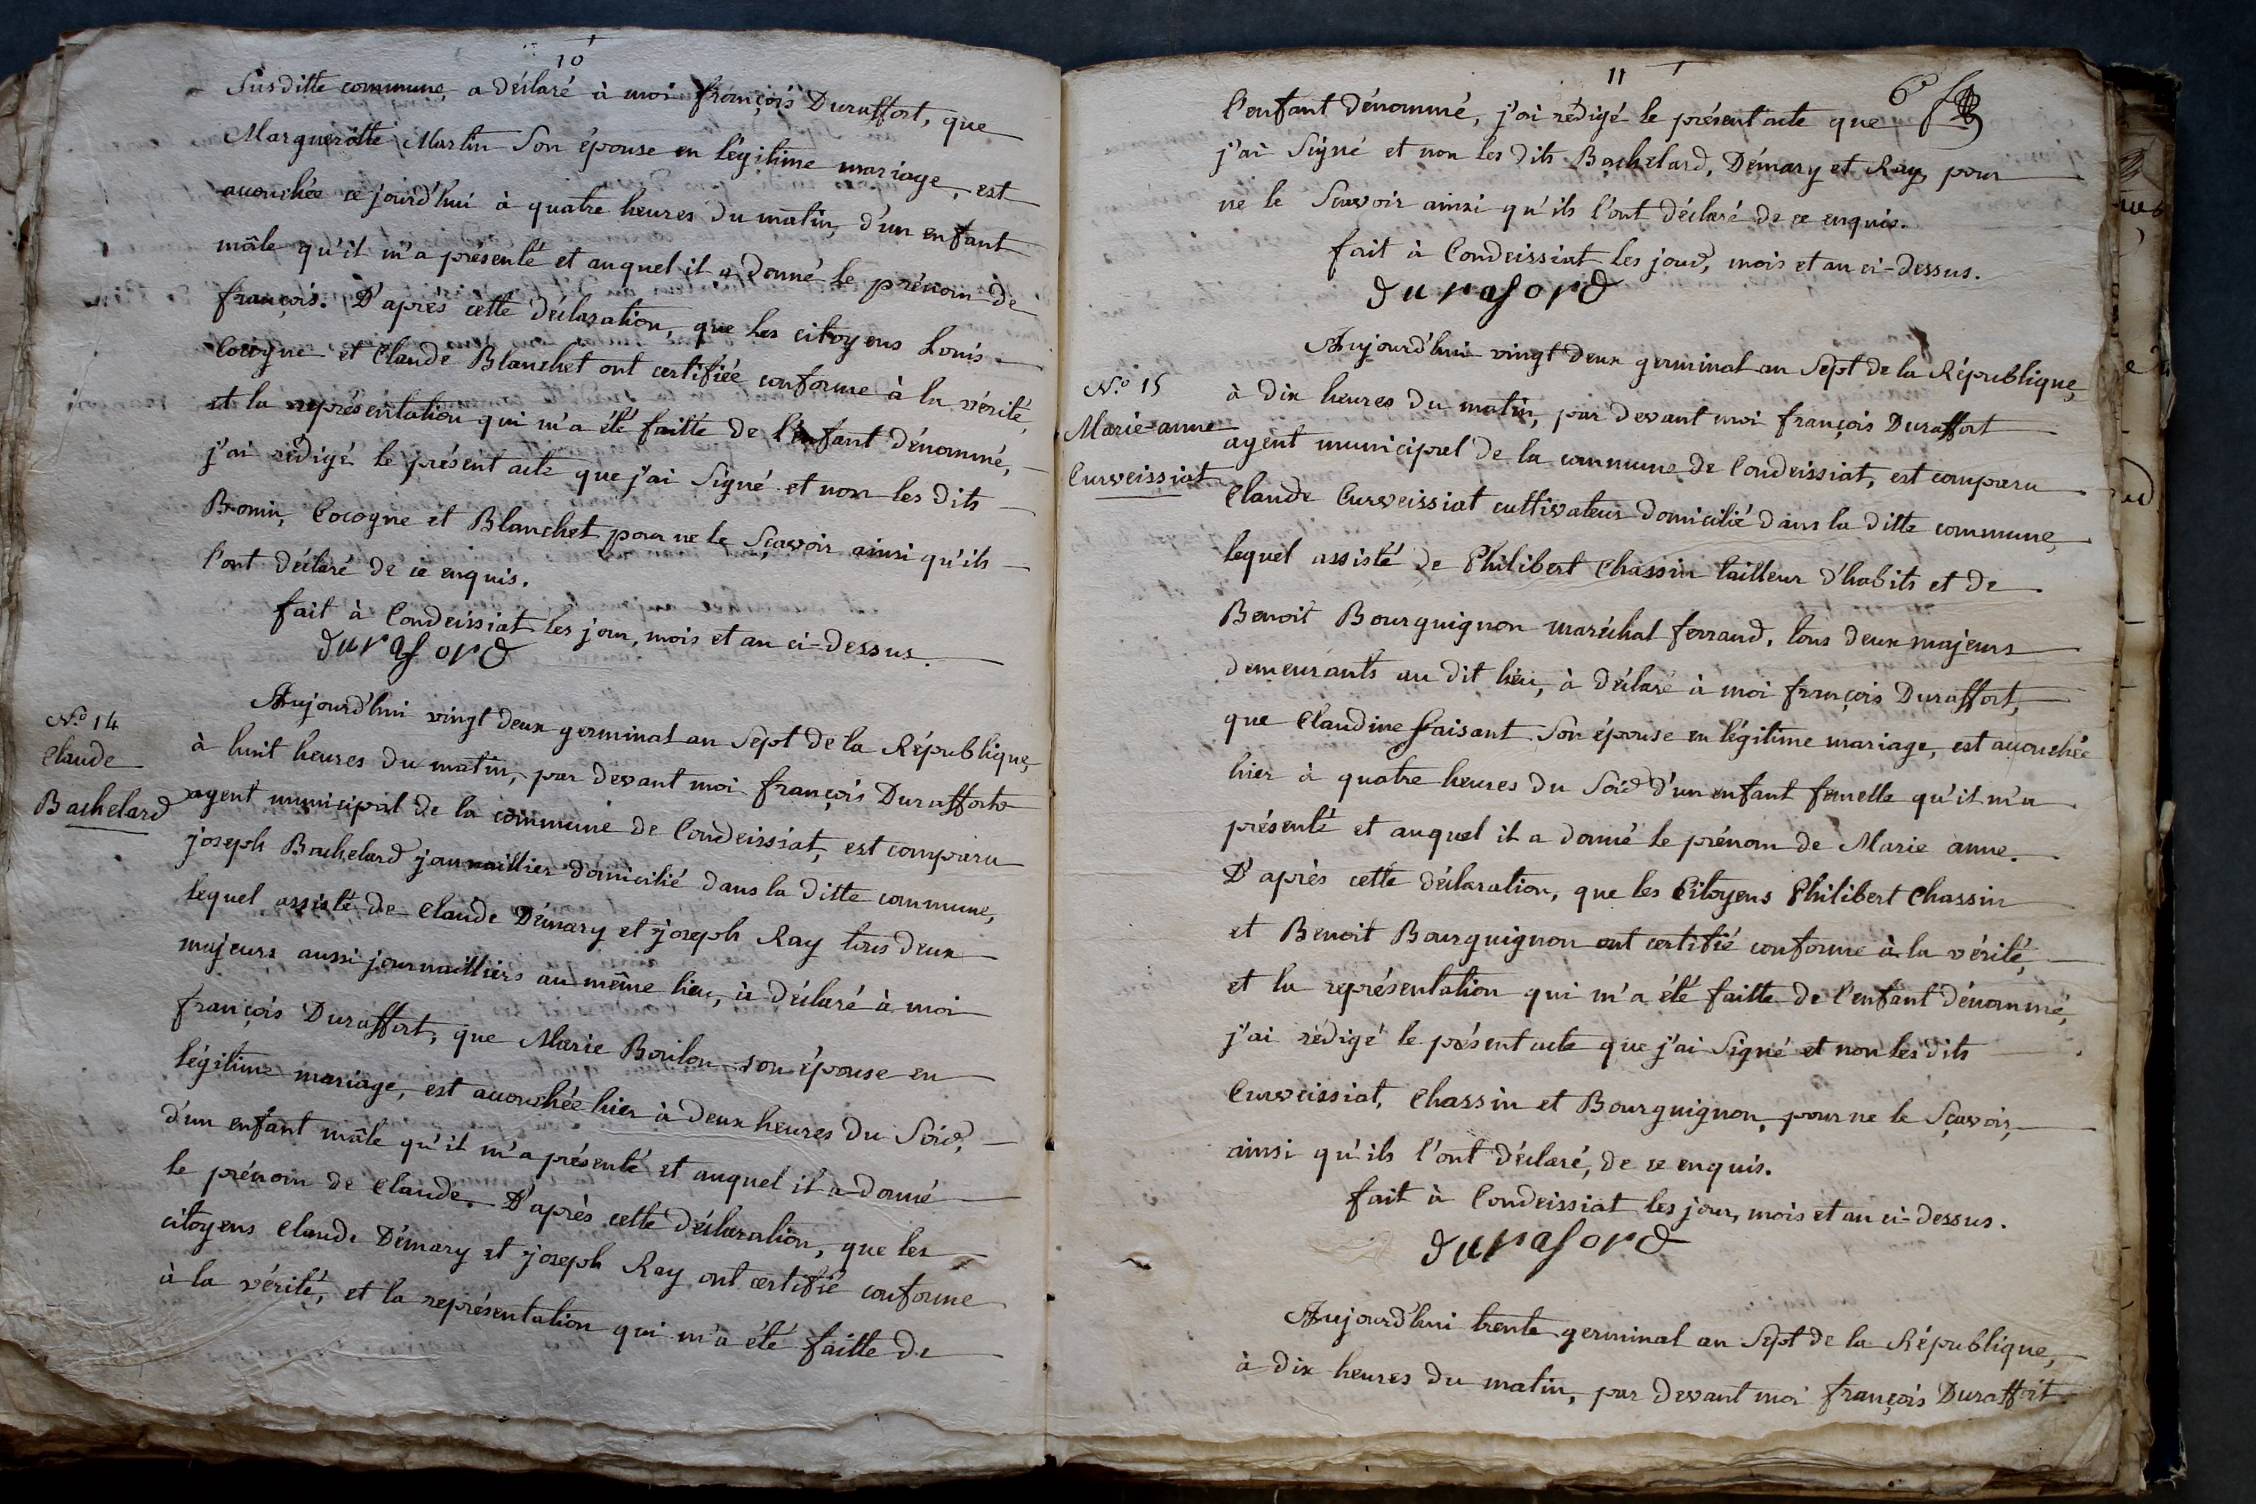 10
Susditte commune, a déclaré à moi françois Duraffort, que
Margueritte Martin Son épouse en légitime mariage, est
accouchée ce jourd'hui à quatre heures du matin, d'un enfant
mâle qu'il m'a présenté et auquel il a donné le prénom de
françois. D'après cette déclaration, que les citoyens Louis
Cocogne et Claude Blanchet ont certifiée conforme à la vérité,
et la représentation qui m'a été faitte de l'enfant dénommé,
j'ai rédigé le présent acte que j'ai Signé et non les dits
Bronin, Cocogne et Blanchet pour ne le Sçavoir ainsi qu'ils
l'ont déclaré de ce enquis.
fait à Condeissiat les jour, mois et an ci-dessus.
duraford
N.o 14
Claude
Bachelard
Aujourd'hui vingt deux germinal an Sept de la République,
à huit heures du matin, par devant moi françois Duraffort
agent municipal de la commune de Condeissiat, est comparu
joseph Bachelard journaillier domicilié dans la ditte commune,
lequel assisté de Claude Démary et joseph Ray tous deux
majeurs aussi journailliers au même lieu, à déclaré à moi
françois Duraffort, que Marie Borilon son épouse en
légitime mariage, est accouchée hier à deux heures du Soir,
d'un enfant mâle qu'il m'a présenté et auquel il a donné
le prénom de Claude. D'après cette déclaration, que les
citoyens Claude Démary et joseph Ray ont certifié conforme
à la vérité, et la représentation qui m'a été faitte de
11
6e
l'enfant dénommé, j'ai rédigé le présent acte que
j'ai Signé et non les dits Bachelard, Démary et Ray, pour
ne le Scavoir ainsi qu'ils l'ont déclaré de ce enquis.
fait à Condeissiat les jour, mois et an ci-dessus.
duraford
N.o 15
Marie-anne
Curveissiat
Aujourd'hui vingt deux germinal an Sept de la République,
à dix heures du matin, par devant moi françois Duraffort
agent municipal de la commune de Condeissiat, est comparu
Claude Curveissiat cultivateur domicilié dans la ditte commune,
lequel assisté de Philibert Chassin tailleur d'habits et de
Benoit Bourguignon maréchal ferrand, tous deux majeurs
demeurants au dit lieu, à déclaré à moi françois Duraffort,
que Claudine faisant Son épouse en légitime mariage, est accouchée
hier à quatre heures du Soir d'un enfant femelle qu'il m'a
présenté et auquel il a donné le prénom de Marie anne.
D'après cette déclaration, que les Citoyens Philibert Chassin
et Benoit Bourguignon ont certifié conforme à la vérité,
et la représentation qui m'a été faitte de l'enfant dénommé,
j'ai rédigé le présent acte que j'ai Signé et non les dits
Curveissiat, Chassin et Bourguignon, pour ne le Sçavoir,
ainsi qu'ils l'ont déclaré, de ce enquis.
fait à Condeissiat les jour, mois et an ci-dessus.
duraford
Aujourd'hui trente germinal an Sept de la République,
à dix heures du matin, par devant moi françois Duraffort